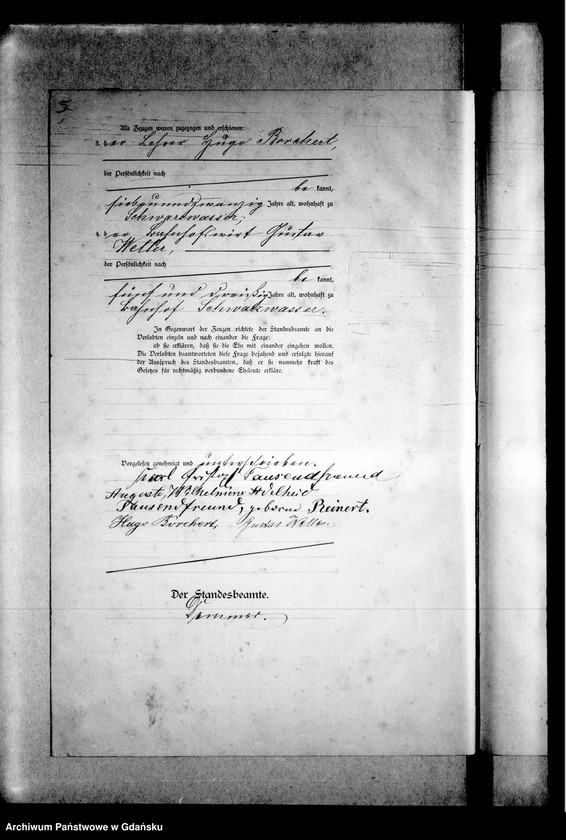 Als Zeugen waren zugezogen und erschienen:
3. der Lehrer Hugo Borchert,
der Persönlichkeit nach
be kannt,
siebenundzwanzig Jahre alt, wohnhaft zu
Schwarzwasser;
4. der Bahnhofswirt Gustav
Welke,
der Persönlichkeit nach
be kannt,
fünf und dreißig Jahre alt, wohnhaft zu
Bahnhof Schwarzwasser.
In Gegenwart der Zeugen richtete der Standesbeamte an die
Verlobten einzeln und nach einander die Frage:
ob sie erklären, daß sie die Ehe mit einander eingehen wollen.
Die Verlobten beantworteten diese Frage bejahend und erfolgte hierauf
der Ausspruch des Standesbeamten, daß er sie nunmehr kraft des
Gesetzes für rechtmäßig verbundene Eheleute erkläre.
Vorgelesen, genehmigt und unterschrieben.
Karl Gustav Tausendfreund
Auguste, Wilhelmine Adelheid
Tausendfreund, geborene Reinert.
Hugo Borchert, Gustav Welke.
Der Standesbeamte.
Archiwum Państwowe w Gdańsku